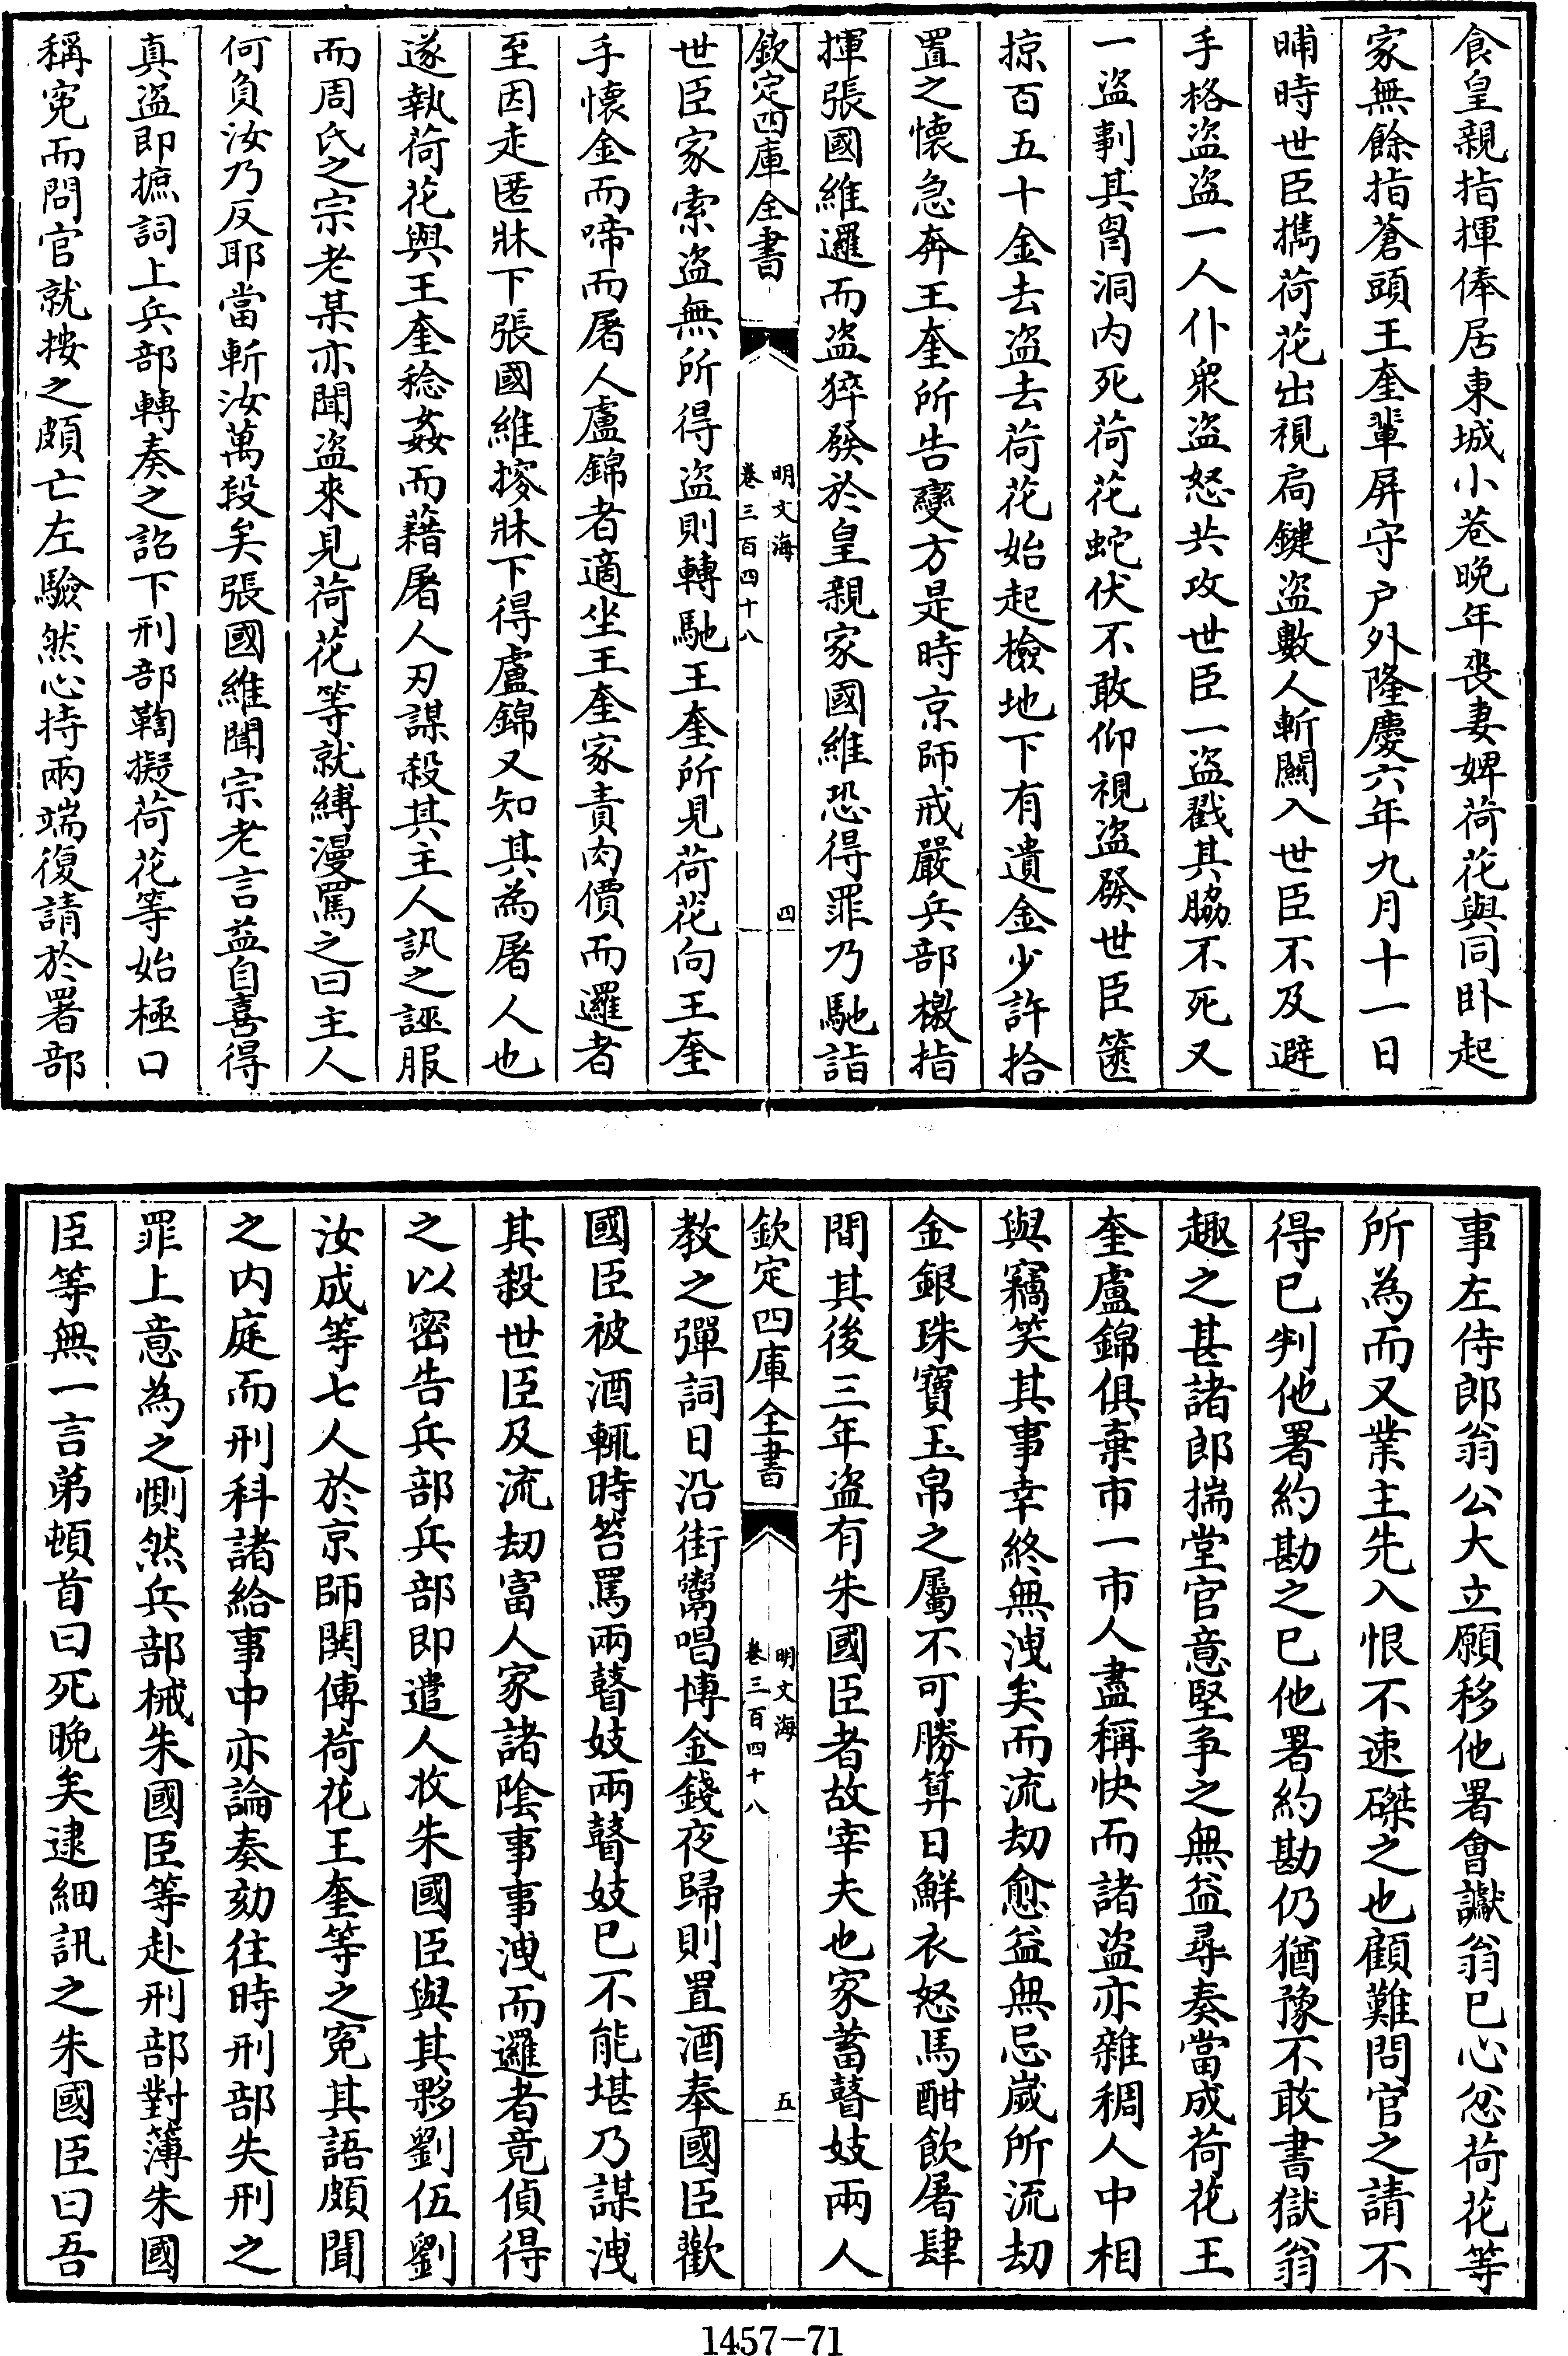 食皇親指揮俸居東城小巷晚年喪妻婢荷花與同卧起
家無餘指蒼頭王奎輩屏守户外隆慶六年九月十一日
晡時世臣攜荷花出視扃鍵盗數人斬關入世臣不及避
手格盗盗一人仆衆盗怒共攻世臣一盗戳其脇不死又
一盗剚其胷洞内死荷花蛇伏不敢仰視盗發世臣篋
掠百五十金去盗去荷花始起檢地下有遺金少許拾
置之懷急奔王奎所告變方是時京師戒嚴兵部檄指
揮張國維邏而盗猝發於皇親家國維恐得罪乃馳詣
欽定四庫全書
明文海
卷三百四十八
四
世臣家索盗無所得盗則轉馳王奎所見荷花向王奎
手懷金而啼而屠人盧錦者適坐王奎家責肉價而邏者
至因走匿牀下張國維搜牀下得盧錦又知其為屠人也
遂執荷花與王奎稔姦而藉屠人刃謀殺其主人訊之誣服
而周氏之宗老某亦聞盗來見荷花等就縛漫罵之曰主人
何負汝乃反耶當斬汝萬段矣張國維聞宗老言益自喜得
真盗即摭詞上兵部轉奏之詔下刑部鞫擬荷花等始極口
稱寃而問官就按之頗亡左驗然心持兩端復請於署部
事左侍郎翁公大立願移他署會讞翁已心忿荷花等
所為而又業主先入恨不速磔之也顧難問官之請不
得已判他署約勘之已他署約勘仍猶豫不敢書獄翁
趣之甚諸郎揣堂官意堅爭之無益尋奏當成荷花王
奎盧錦俱棄市一市人盡稱快而諸盗亦雜稠人中相
與竊笑其事幸終無洩矣而流刧愈益無忌嵗所流刧
金銀珠寳玉帛之屬不可勝算日鮮衣怒馬酣飲屠肆
間其後三年盗有朱國臣者故宰夫也家蓄瞽妓兩人
欽定四庫全書
明文海
卷三百四十八
五
教之彈詞日沿街鬻唱博金錢夜歸則置酒奉國臣歡
國臣被酒輒時笞罵兩瞽妓兩瞽妓已不能堪乃謀洩
其殺世臣及流刧富人家諸陰事事洩而邏者竟偵得
之以密告兵部兵部即遣人收朱國臣與其夥劉伍劉
汝成等七人於京師閧傳荷花王奎等之寃其語頗聞
之内庭而刑科諸給事中亦論奏劾往時刑部失刑之
罪上意為之惻然兵部械朱國臣等赴刑部對薄朱國
臣等無一言弟頓首曰死晚矣逮細訊之朱國臣曰吾
1457—71